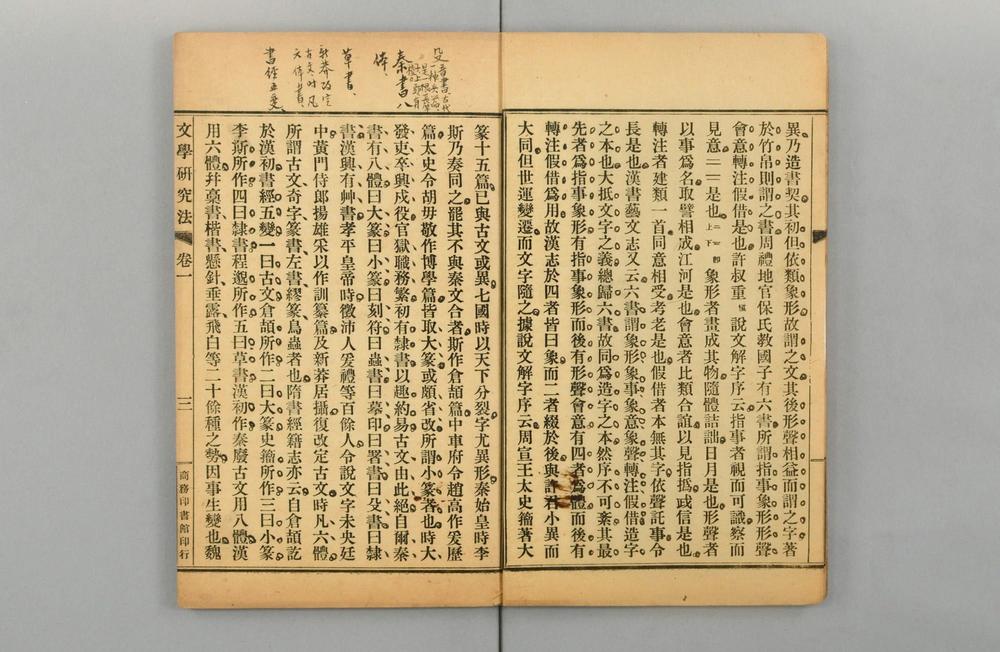 異乃造書契其初但依類象形故謂之文其後形聲相益而謂之字著
於竹帛則謂之書周禮地官保氏教國子有六書所謂指事象形形聲
會意轉注假借是也許叔重慎說文解字序云指事者視而可識察而
見意二二是也二二即上下象形者畫成其物隨體詰詘日月是也形聲者
以事爲名取譬相成江河是也會意者比類合誼以見指撝武信是也
轉注者建類一首同意相受考老是也假借者本無其字依聲託事令
長是也漢書藝文志又云六書謂象形象事象意象聲轉注假借造字
之本也大抵文字之義總歸六書故同爲造字之本然序不可紊其最
先者爲指事象形有指事象形而後有形聲會意有四者爲體而後有
轉注假借爲用故漢志於四者皆曰象而二者綴於後與許君小異而
大同但世運變遷而文字隨之據說文解字序云周宣王太史籀著大
殳音書古代
秦書八
體
草書
新莽改定
古文时凡
六體書
書經五變
篆十五篇已與古文或異七國時以天下分裂字尤異形秦始皇時李
斯乃奏同之罷其不與秦文合者斯作倉頡篇中車府令趙高作爰歷
篇太史令胡毋敬作博學篇皆取大篆或頗省改所謂小篆者也時大
發吏卒興戍役官獄職務繁初有隸書以趣約易古文由此絕自爾秦
書有八體曰大篆曰小篆曰刻符曰蟲書曰摹印曰署書曰殳書曰隸
書漢興有艸書孝平皇帝時徵沛人爰禮等百餘人令說文字未央廷
中黃門侍郎揚雄采以作訓纂篇及新莽居攝復改定古文時凡六體
所謂古文奇字篆書左書繆篆鳥蟲者也隋書經籍志亦云自倉頡訖
於漢初書經五變一曰古文倉頡所作二曰大篆史籀所作三曰小篆
李斯所作四曰隸書程邈所作五曰草書漢初作秦廢古文用八體漢
用六體幷藁書楷書懸針垂露飛白等二十餘種之勢因事生變也魏
文學研究法
卷一
三
商務印書館印行